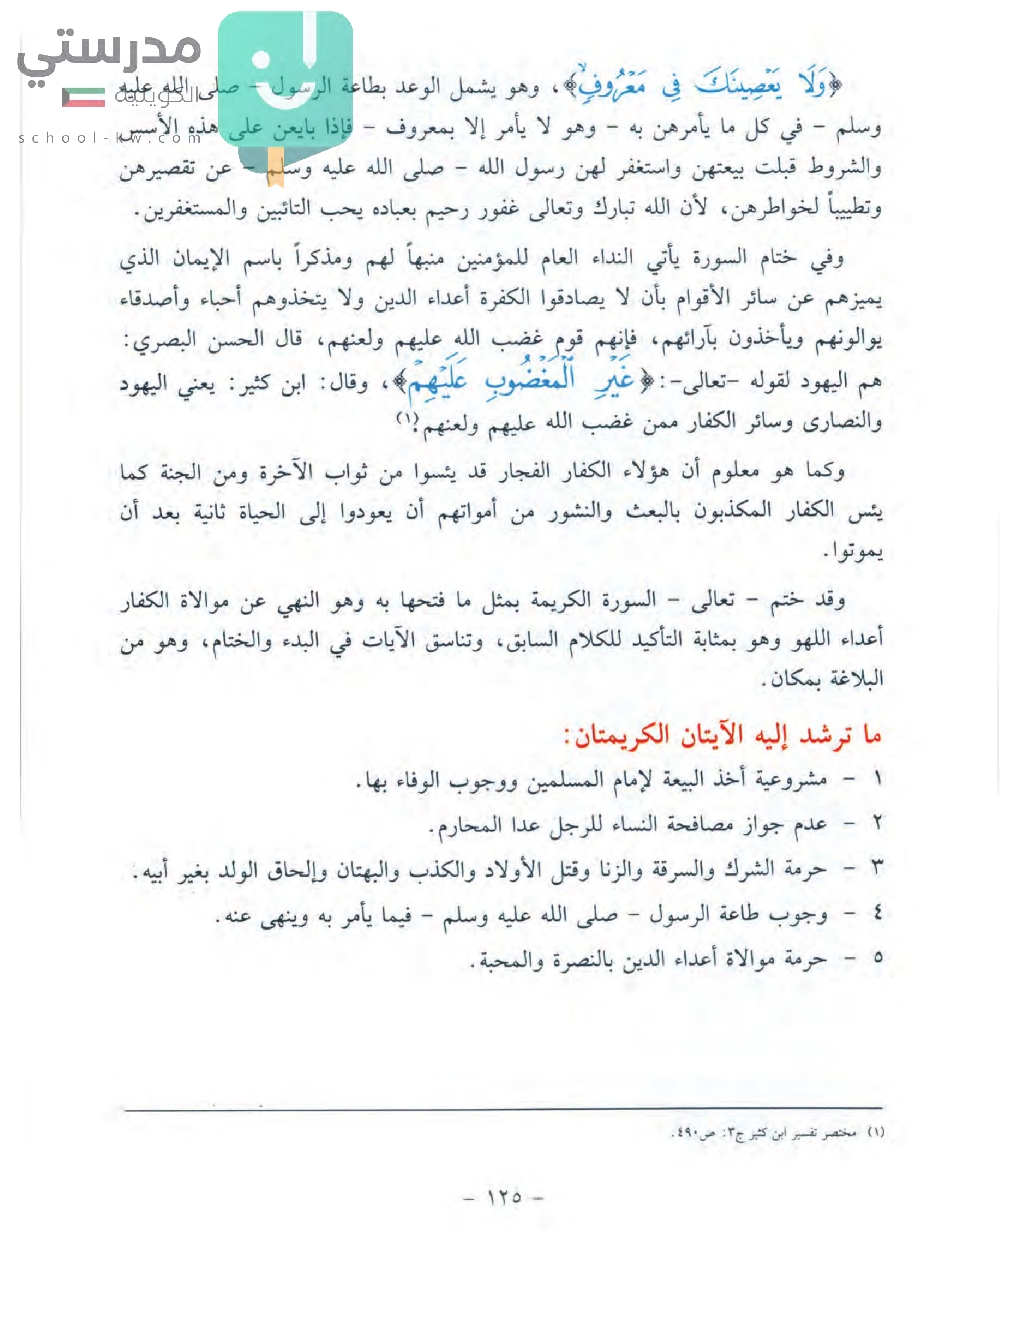 مدرستي
الكويتية
school-kw.com
﴿وَلَا يَعْصِينَكَ فِي مَعْرُوفٍ﴾، وهو يشمل الوعد بطاعة الرسول – صلى الله عليه
وسلم – في كل ما يأمرهن به – وهو لا يأمر إلا بمعروف – فإذا بايعن على هذه الأسس
والشروط قبلت بيعتهن واستغفر لهن رسول الله – صلى الله عليه وسلم – عن تقصيرهن
وتطييباً لخواطرهن، لأن الله تبارك وتعالى غفور رحيم بعباده يحب التائبين والمستغفرين.
وفي ختام السورة يأتي النداء العام للمؤمنين منبهاً لهم ومذكراً باسم الإيمان الذي
يميزهم عن سائر الأقوام بأن لا يصادقوا الكفرة أعداء الدين ولا يتخذوهم أحباء وأصدقاء
يوالونهم ويأخذون بآرائهم، فإنهم قوم غضب الله عليهم ولعنهم، قال الحسن البصري:
هم اليهود لقوله –تعالى–: ﴿غَيْرِ الْمَغْضُوبِ عَلَيْهِمْ﴾، وقال: ابن كثير: يعني اليهود
والنصارى وسائر الكفار ممن غضب الله عليهم ولعنهم؟(١)
وكما هو معلوم أن هؤلاء الكفار الفجار قد يئسوا من ثواب الآخرة ومن الجنة كما
يئس الكفار المكذبون بالبعث والنشور من أمواتهم أن يعودوا إلى الحياة ثانية بعد أن
يموتوا.
وقد ختم – تعالى – السورة الكريمة بمثل ما فتحها به وهو النهي عن موالاة الكفار
أعداء اللهو وهو بمثابة التأكيد للكلام السابق، وتناسق الآيات في البدء والختام، وهو من
البلاغة بمكان.
ما ترشد إليه الآيتان الكريمتان:
١ – مشروعية أخذ البيعة لإمام المسلمين ووجوب الوفاء بها.
٢ – عدم جواز مصافحة النساء للرجل عدا المحارم.
٣ – حرمة الشرك والسرقة والزنا وقتل الأولاد والكذب والبهتان وإلحاق الولد بغير أبيه.
٤ – وجوب طاعة الرسول – صلى الله عليه وسلم – فيما يأمر به وينهى عنه.
٥ – حرمة موالاة أعداء الدين بالنصرة والمحبة.
(١) مختصر تفسير ابن كثير ج٣: ص٤٩٠.
– ١٢٥ –